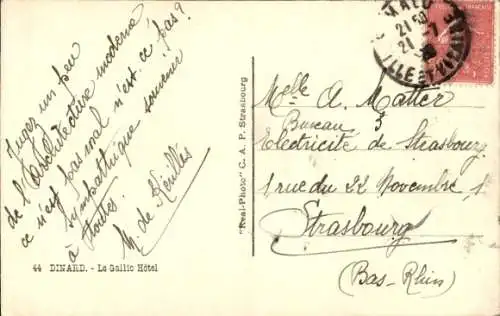 Jugez un peu
de l'Architecture moderne
ce n'est pas mal n'est ce pas?
sympathique souvenir
à toutes.
M. de
44 DINARD. - Le Gallic Hôtel
"Real-Photo" C. A. P. Strasbourg
MALO
21 50
21 - 7
ILLE ET VILAINE
Melle A. Matter
Bureau 3
Electricité de Strasbourg
1 rue du 22 Novembre
Strasbourg
(Bas-Rhin)